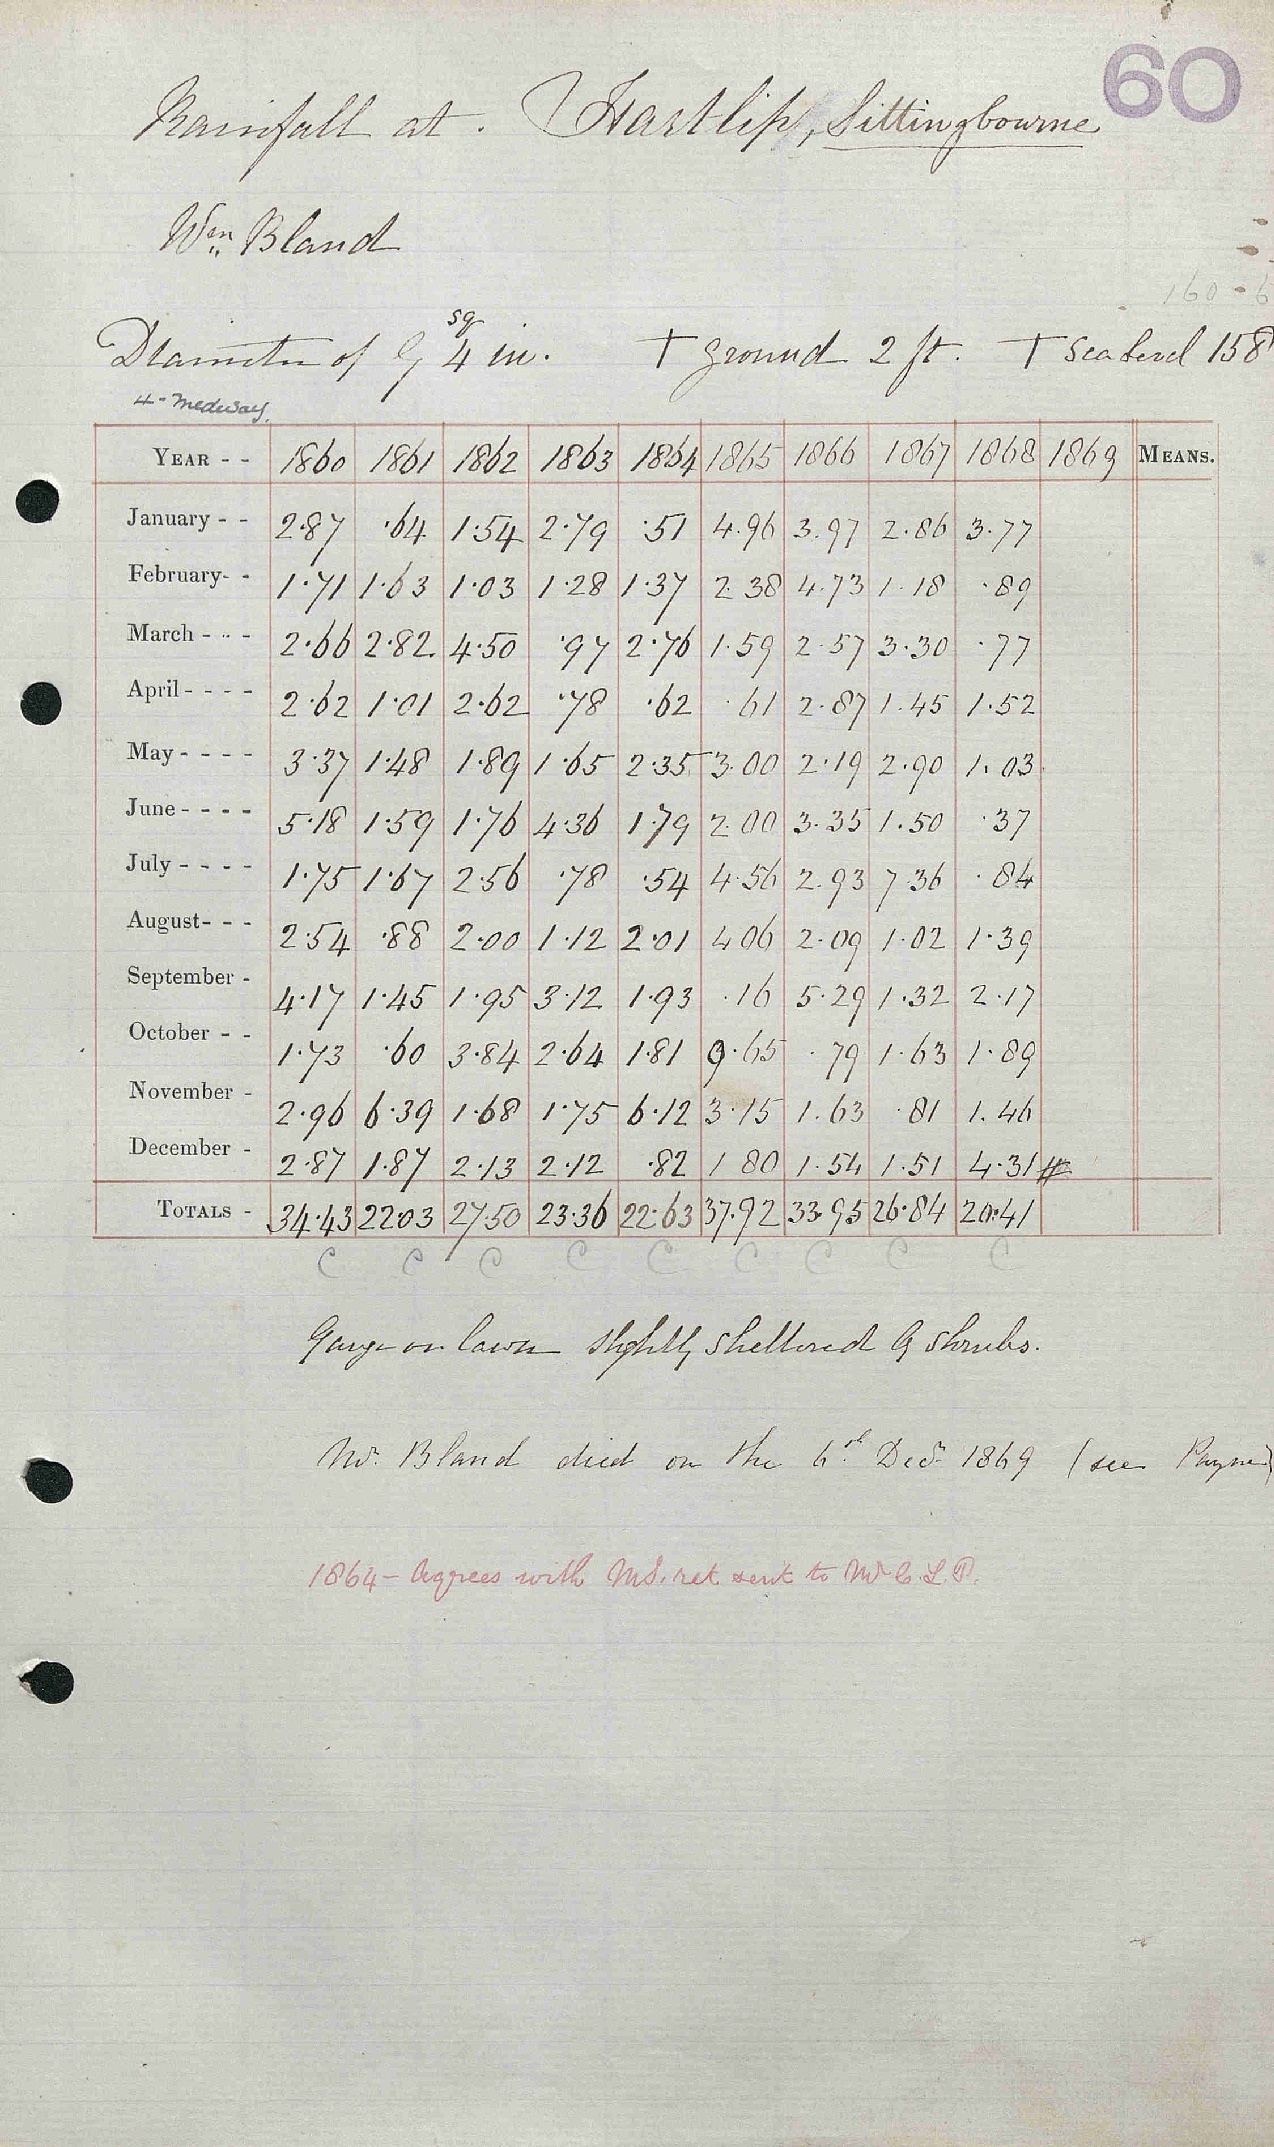 60
Rainfall at . Hartlip, Sittingbourne
Wm Bland
160 - 6
sq
Diameter of G 4 in. + ground 2 ft. + Sea Level 158
4 - Medway.
YEAR - - 1860 1861 1862 1863 1864 1865 1866 1867 1868 1869 MEANS.
January - - 2·87 ·64 1·54 2·79 ·51 4·96 3.97 2.86 3·77
February- - 1·71 1·63 1·03 1·28 1·37 2.38 4.73 1.18 ·89
March - - - 2·66 2·82 4·50 ·97 2·76 1.59 2.57 3.30 ·77
April - - - - 2·62 1·01 2·62 ·78 ·62 ·61 2.87 1.45 1.52
May - - - - 3·37 1·48 1·89 1·65 2·35 3.00 2.19 2.90 1.03
June - - - - 5·18 1·59 1·76 4·36 1·79 2.00 3.35 1.50 ·37
July - - - - 1·75 1·67 2·56 ·78 ·54 4.56 2.93 7.36 ·84
August- - - 2·54 ·88 2·00 1·12 2·01 4 06 2.09 1.02 1·39
September - 4·17 1·45 1·95 3·12 1·93 ·16 5.29 1.32 2.17
October - - 1·73 ·60 3·84 2·64 1·81 9·65 ·79 1.63 1.89
November - 2·96 6·39 1·68 1·75 6·12 3·15 1.63 ·81 1.46
December - 2·87 1·87 2·13 2·12 ·82 1 80 1.54 1.51 4.31
TOTALS - 34·43 22 03 27 50 23·36 22·63 37.92 33.95 26·84 20·41
C C C C C C C C C
Gauge on lawn slightly sheltered by shrubs.
Mr. Bland died on the 6th Decr 1869 (see Payne)
1864 - Agrees with MS. ret sent to Mr C. L. P.